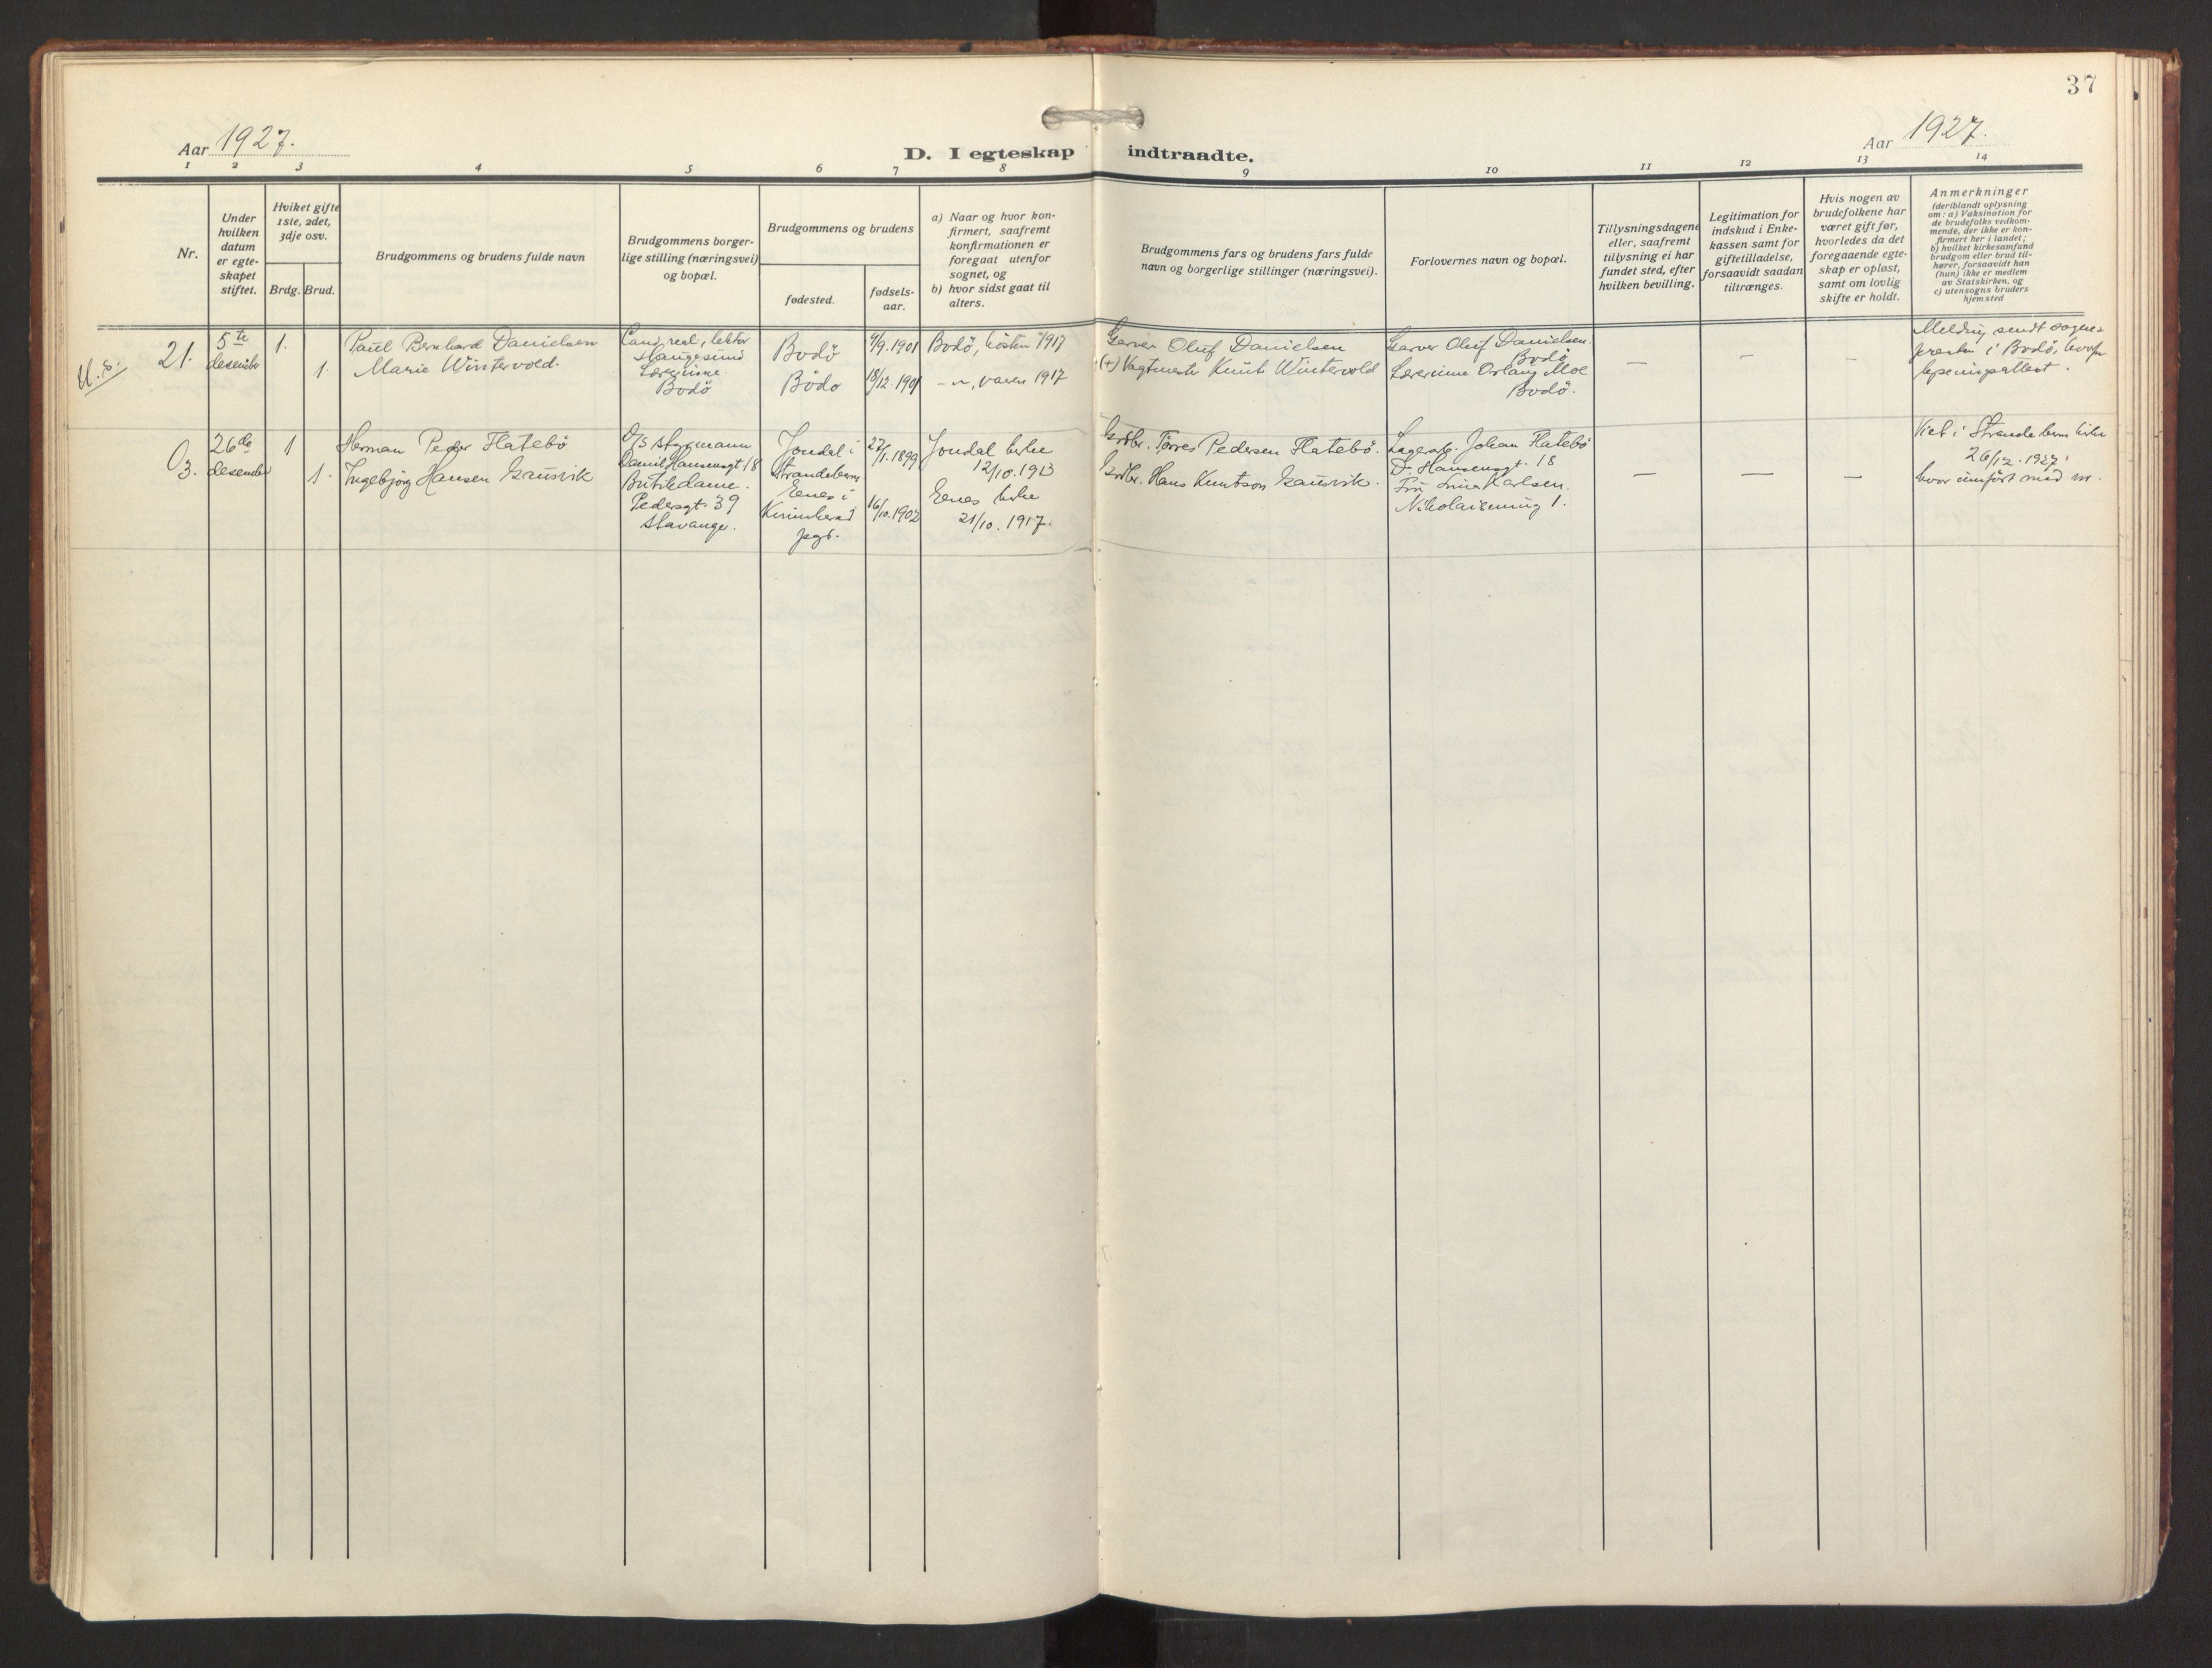 37
Aar 1927.
Aar 1927.
D. I egteskap indtraadte.
1 2 3 4 5 6 7 8 9 10 11 12 13 14
Nr.
Under
hvilken
datum
er egte-
skapet
stiftet.
Hviket gifte
1ste, 2det,
3dje osv.
Brdg. Brud.
Brudgommens og brudens fulde navn
Brudgommens borger-
lige stilling (næringsvei)
og bopæl.
Brudgommens og brudens
fødested.
fødsels-
aar.
a) Naar og hvor kon-
firmert, saafremt
konfirmationen er
foregaat utenfor
sognet, og
b) hvor sidst gaat til
alters.
Brudgommens fars og brudens fars fulde
navn og borgerlige stillinger (næringsvei).
Forlovernes navn og bopæl.
Tillysningsdagene
eller, saafremt
tillysning ei har
fundet sted, efter
hvilken bevilling.
Legitimation for
indskud i Enke-
kassen samt for
giftetilladelse,
forsaavidt saadan
tiltrænges.
Hvis nogen av
brudefolkene har
været gift før,
hvorledes da det
foregaaende egte-
skap er opløst,
samt om lovlig
skifte er holdt.
Anmerkninger
(deriblandt oplysning
om: a) Vaksination for
de brudefolks vedkom-
mende, der ikke er kon-
firmert her i landet;
b) hvilket kirkesamfund
brudgom eller brud til-
hører, forsaavidt han
(hun) ikke er medlem
av Statskirken, og
c) utensogns bruders
hjemsted
U.s.
21.
5te
desember
1.
1.
Paul Bernhard Danielsen
Marie Wintervold.
Cand. real, lektor
Haugesund
Lærerinne
Bodö
Bodö
Bodö
9/9.1901
18/12.1901
Bodö, hösten 1917
- " -, vaaren 1917
Garver Oluf Danielsen
(+) Vagtmester Knut Wintervold
Garver Oluf Danielsen.
Bodö
Lærerinne Aslaug Moe
Bodö.
—
—
—
Melding sendt sogne-
presten i Bodö,
O3.
26de
desember
1
1.
Herman Peder Flatebö
Ingebjörg Hansen Gausvik
D/S styrmann
Daniel Hansensgt 18
Butikdame.
Pedersgt. 39
Stavanger.
Jondal i
Strandebarm
Eenes i
Kvinnherad
pgd.
27/1.1899
16/10.1902
Jondal kirke
12/10.1913
Eenes kirke
21/10.1917.
Grdbr. Tørres Pedersen Flatebö.
Grdbr. Hans Knutson Gausvik.
Lagerarb. Johan Flatebö
D. Hansensgt. 18
Fru Karlsen.
1.
—
—
—
Viet i Strandebarm kirke
26/12.1927
hvor innfört med nr.